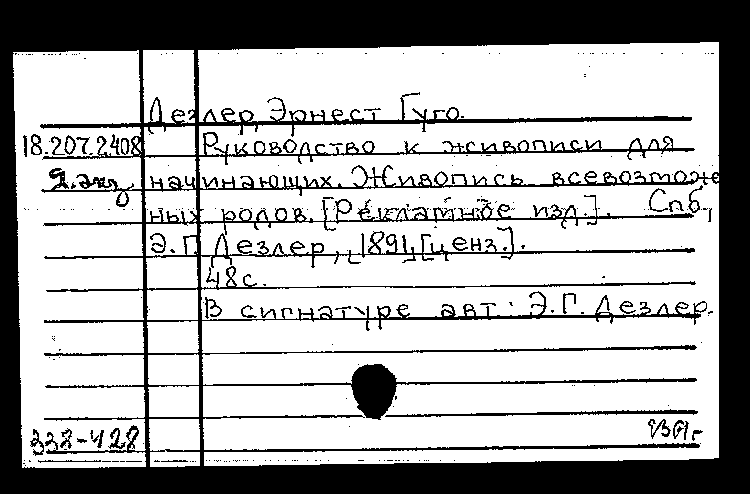 Дезлер, Эрнест Гуго.
18.207.2408 Руководство к живописи для
2. экз. начинающих. Живопись всевозмож
ных родов. [Рекламное изд.]. Спб.,
Э.Г. Дезлер, [1891, [ценз.].
48 с.
В сигнатуре авт.: Э.Г. Дезлер.
338-428